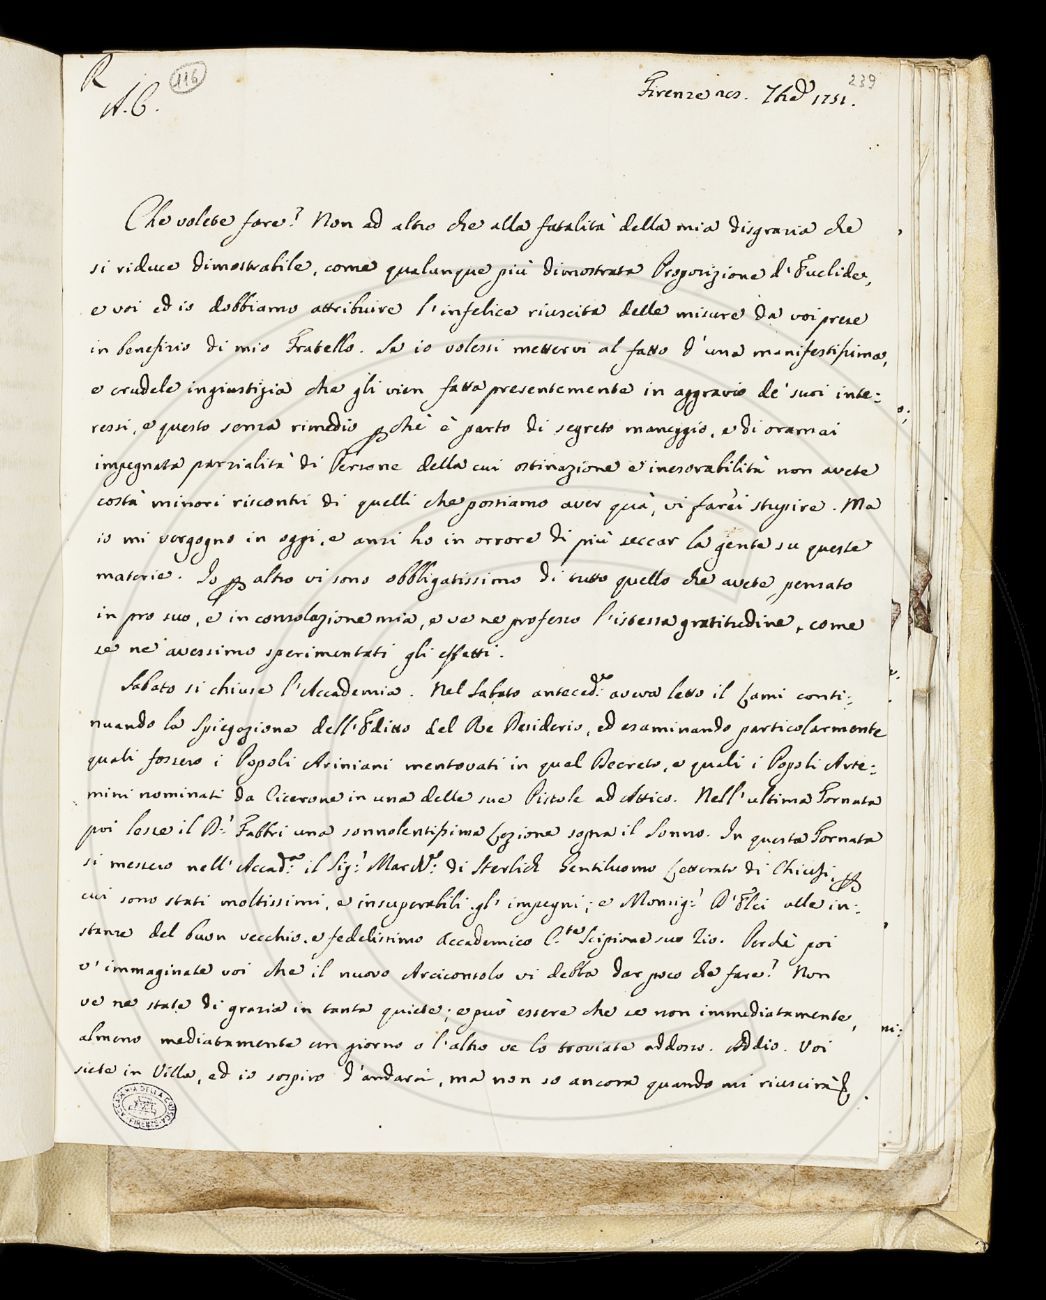 R
A. C.
116
239
Firenze 20. 7bre 1751.
Che volete fare? Non ad altro che alla fatalità della mia disgrazia che
si riduce dimostrabile, come qualunque più dimostrata Proposizione d'Euclide,
e voi ed io dobbiamo attribuire l'infelice riuscita delle misure da voi prese
in benefizio di mio Fratello. Se io volessi mettervi al fatto d'una manifestissima,
e crudele ingiustizia che gli vien fatta presentemente in aggravio de' suoi inte:
ressi, e questo senza rimedio pchè è parto di segreto maneggio, e di oramai
impegnata parzialità di Persone della cui ostinazione e inesorabilità non avete
costà minori riscontri di quelli che possiamo aver quà, vi farei stupire. Ma
io mi vergogno in oggi, e anzi ho in orrore di più seccar la gente su queste
materie. Io p altro vi sono obbligatissimo di tutto quello che avete pensato
in pro suo, e in consolazione mia, e ve ne professo l'istessa gratitudine, come
se ne avessimo sperimentati gli effetti.
Sabato si chiuse l'Accademia. Nel Sabato anteced.e aveva letto il Lami conti:
nuando la Spiegazione dell'Editto del Re Desiderio, ed esaminando particolarmente
quali fossero i Popoli Ariniani mentovati in quel Decreto, e quali i Popoli Arte:
mini nominati da Cicerone in una delle sue Pistole ad Attico. Nell'ultima Tornata
poi lesse il D.r Fabbri una sonnolentissima Lezione sopra il Sonno. In questa Tornata
si messero nell'Accad.a il Sig.r March.e di Sterlich Gentiluomo Letterato di Chieti, p
cui sono stati moltissimi, e insuperabili gl'impegni; e Monsig.r D'Elci alle in:
stanze del buon vecchio, e fedelissimo Accademico C.te Scipione suo Zio. Perchè poi
v'immaginate voi che il nuovo Arciconsolo vi debba dar poco che fare? Non
ve ne state di grazia in tanta quiete; e può essere che se non immediatamente,
almeno mediatamente un giorno o l'altro ve lo troviate addosso. Addio. Voi
siete in Villa, ed io sospiro d'andarci, ma non so ancora quando mi riuscirà